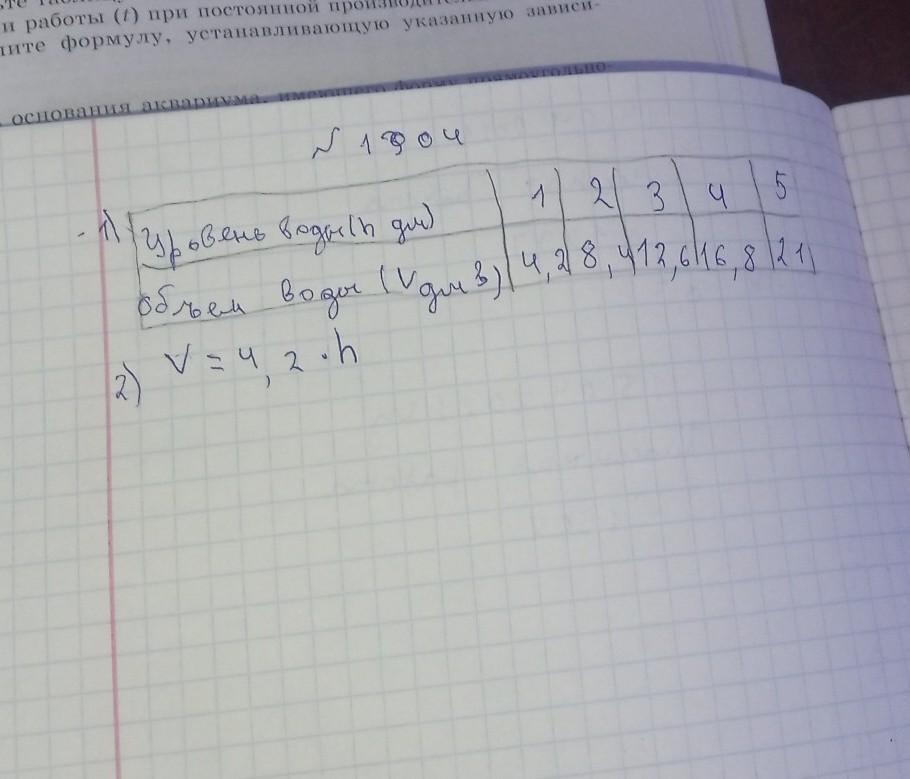 и работы (t) при постоянной
ите формулу, устанавливающую указанную зависи-
основания аквариума, имеющего форму прямоугольно-
N 1304
1) Уровень воды (h дм) 1 2 3 4 5
объем воды (V дм 3) 4,2 8,4 12,6 16,8 21
2) V = 4,2 · h